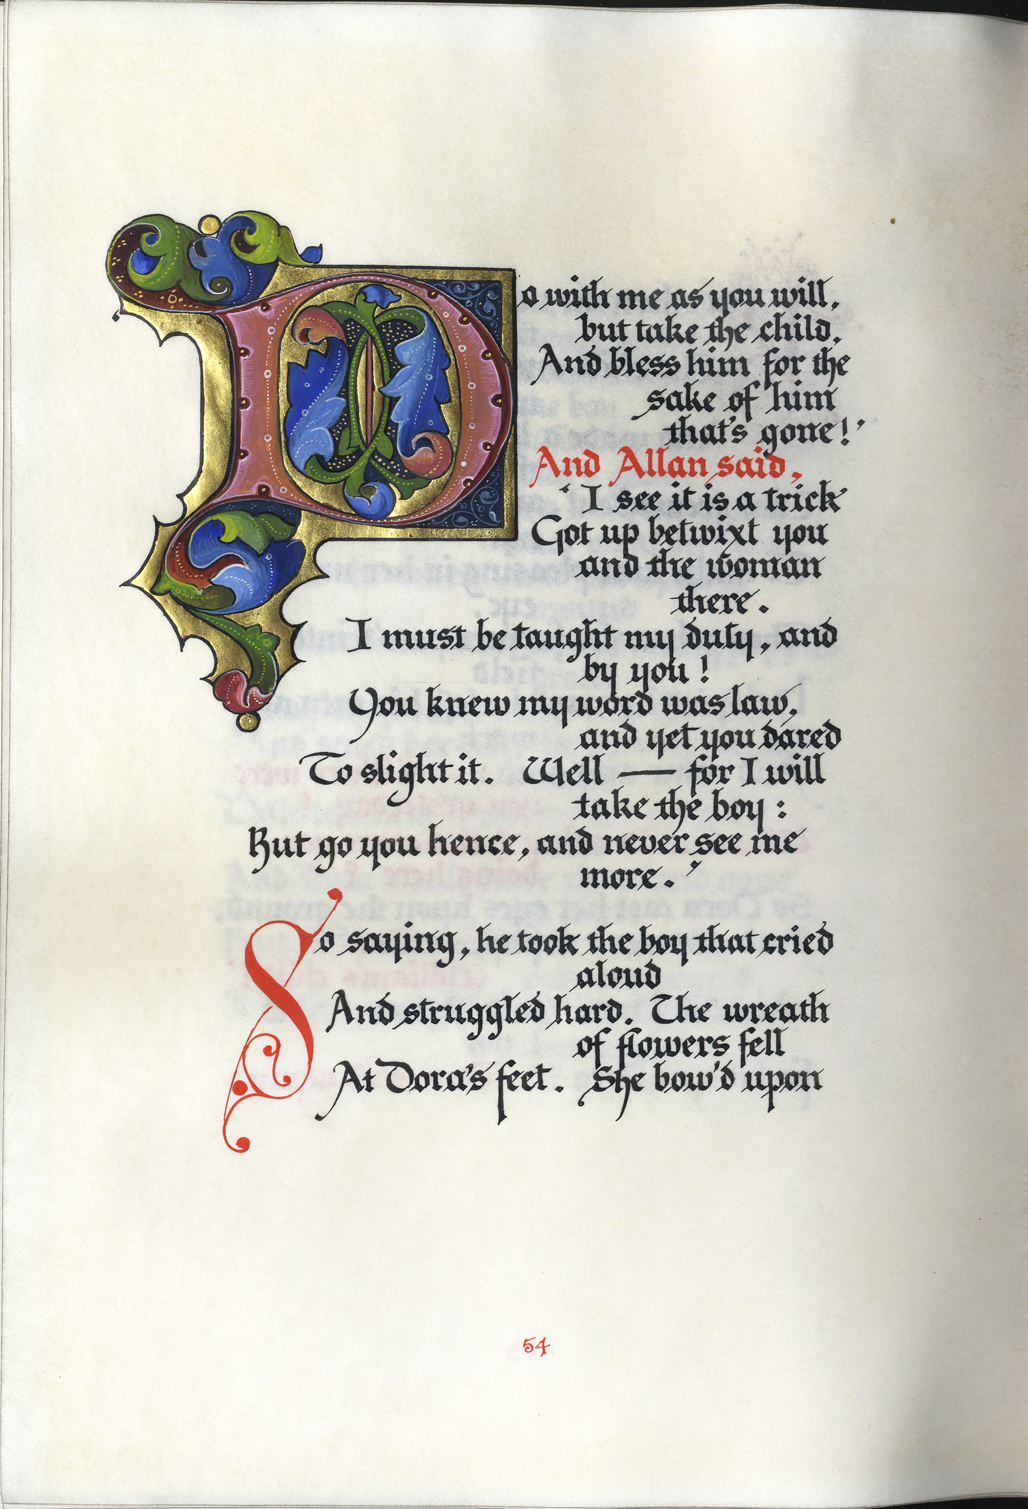 Do with me as you will,
but take the child,
And bless him for the
sake of him
that's gone!'
And Allan said,
'I see it is a trick
Got up betwixt you
and the woman
there.
I must be taught my duty, and
by you!
You knew my word was law,
and yet you dared
To slight it. Well — for I will
take the boy:
But go you hence, and never see me
more.'
So saying, he took the boy that cried
aloud
And struggled hard. The wreath
of flowers fell
At Dora's feet. She bow'd upon
54